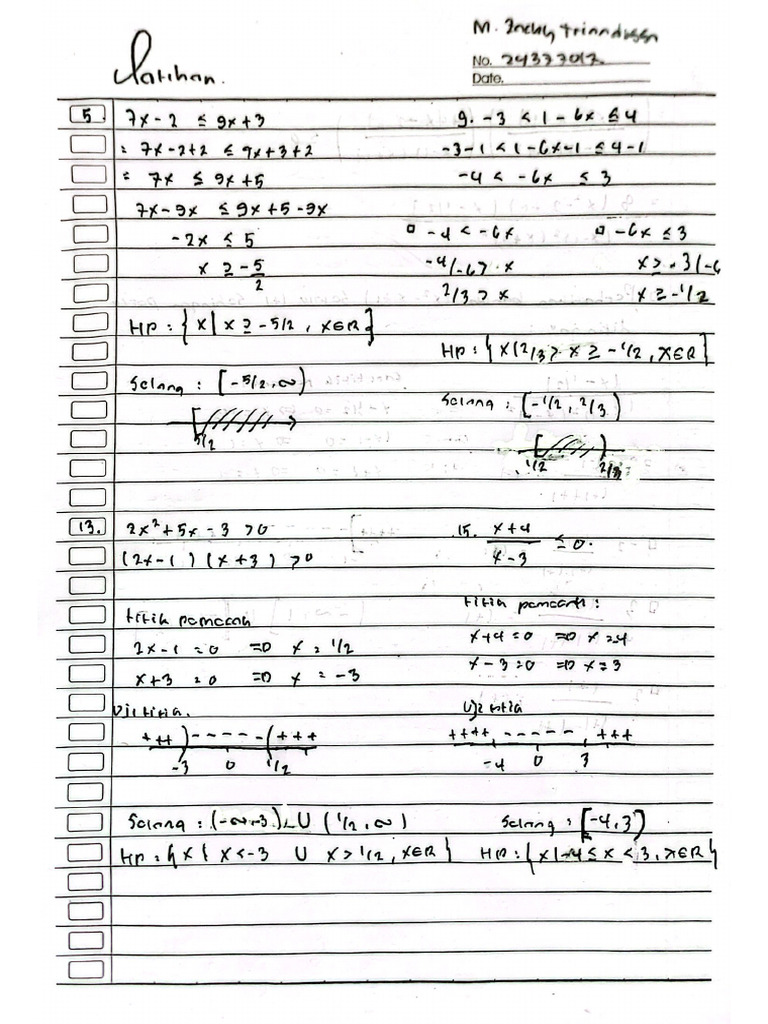 Latihan.
M.
No. 24337017
Date.
5. 7x - 2 ≤ 9x + 3
= 7x - 2 + 2 ≤ 9x + 3 + 2
= 7x ≤ 9x + 5
7x - 9x ≤ 9x + 5 - 9x
-2x ≤ 5
x ≥ -5/2
HP : {x | x ≥ -5/2, x∈R}
Selang : [-5/2, ∞)
5/2
9. -3 < 1 - 6x ≤ 4
-3 - 1 < 1 - 6x - 1 ≤ 4 - 1
-4 < -6x ≤ 3
-4 < -6x
-6x ≤ 3
-4/-6 > x
x ≥ -3/-6
2/3 > x
x ≥ -1/2
HP : {x | 2/3 > x ≥ -1/2, x∈R}
Selang : [-1/2, 2/3)
-1/2 2/3
13. 2x² + 5x - 3 > 0
(2x - 1) (x + 3) > 0
titik pemecah
2x - 1 = 0 => x = 1/2
x + 3 = 0 => x = -3
Uji titik.
+++ ) - - - - - ( + + +
-3 0 1/2
Selang : (-∞, -3) U (1/2, ∞)
HP : {x | x < -3 U x > 1/2, x∈R}
15. x + 4 / x - 3 ≤ 0.
titik pemecah :
x + 4 = 0 => x = 4
x - 3 = 0 => x = 3
Uji titik
++++ - - - - - +++
-4 0 3
Selang : [-4, 3)
HP : {x | -4 ≤ x < 3, x∈R}